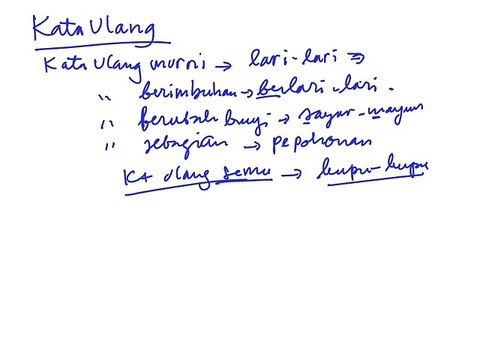 Kata Ulang
Kata Ulang murni → lari-lari ⇒
" berimbuhan → berlari-lari.
" berubah bunyi → sayur-mayur
" sebagian → pepohonan
Kt ulang semu → kupu-kupu